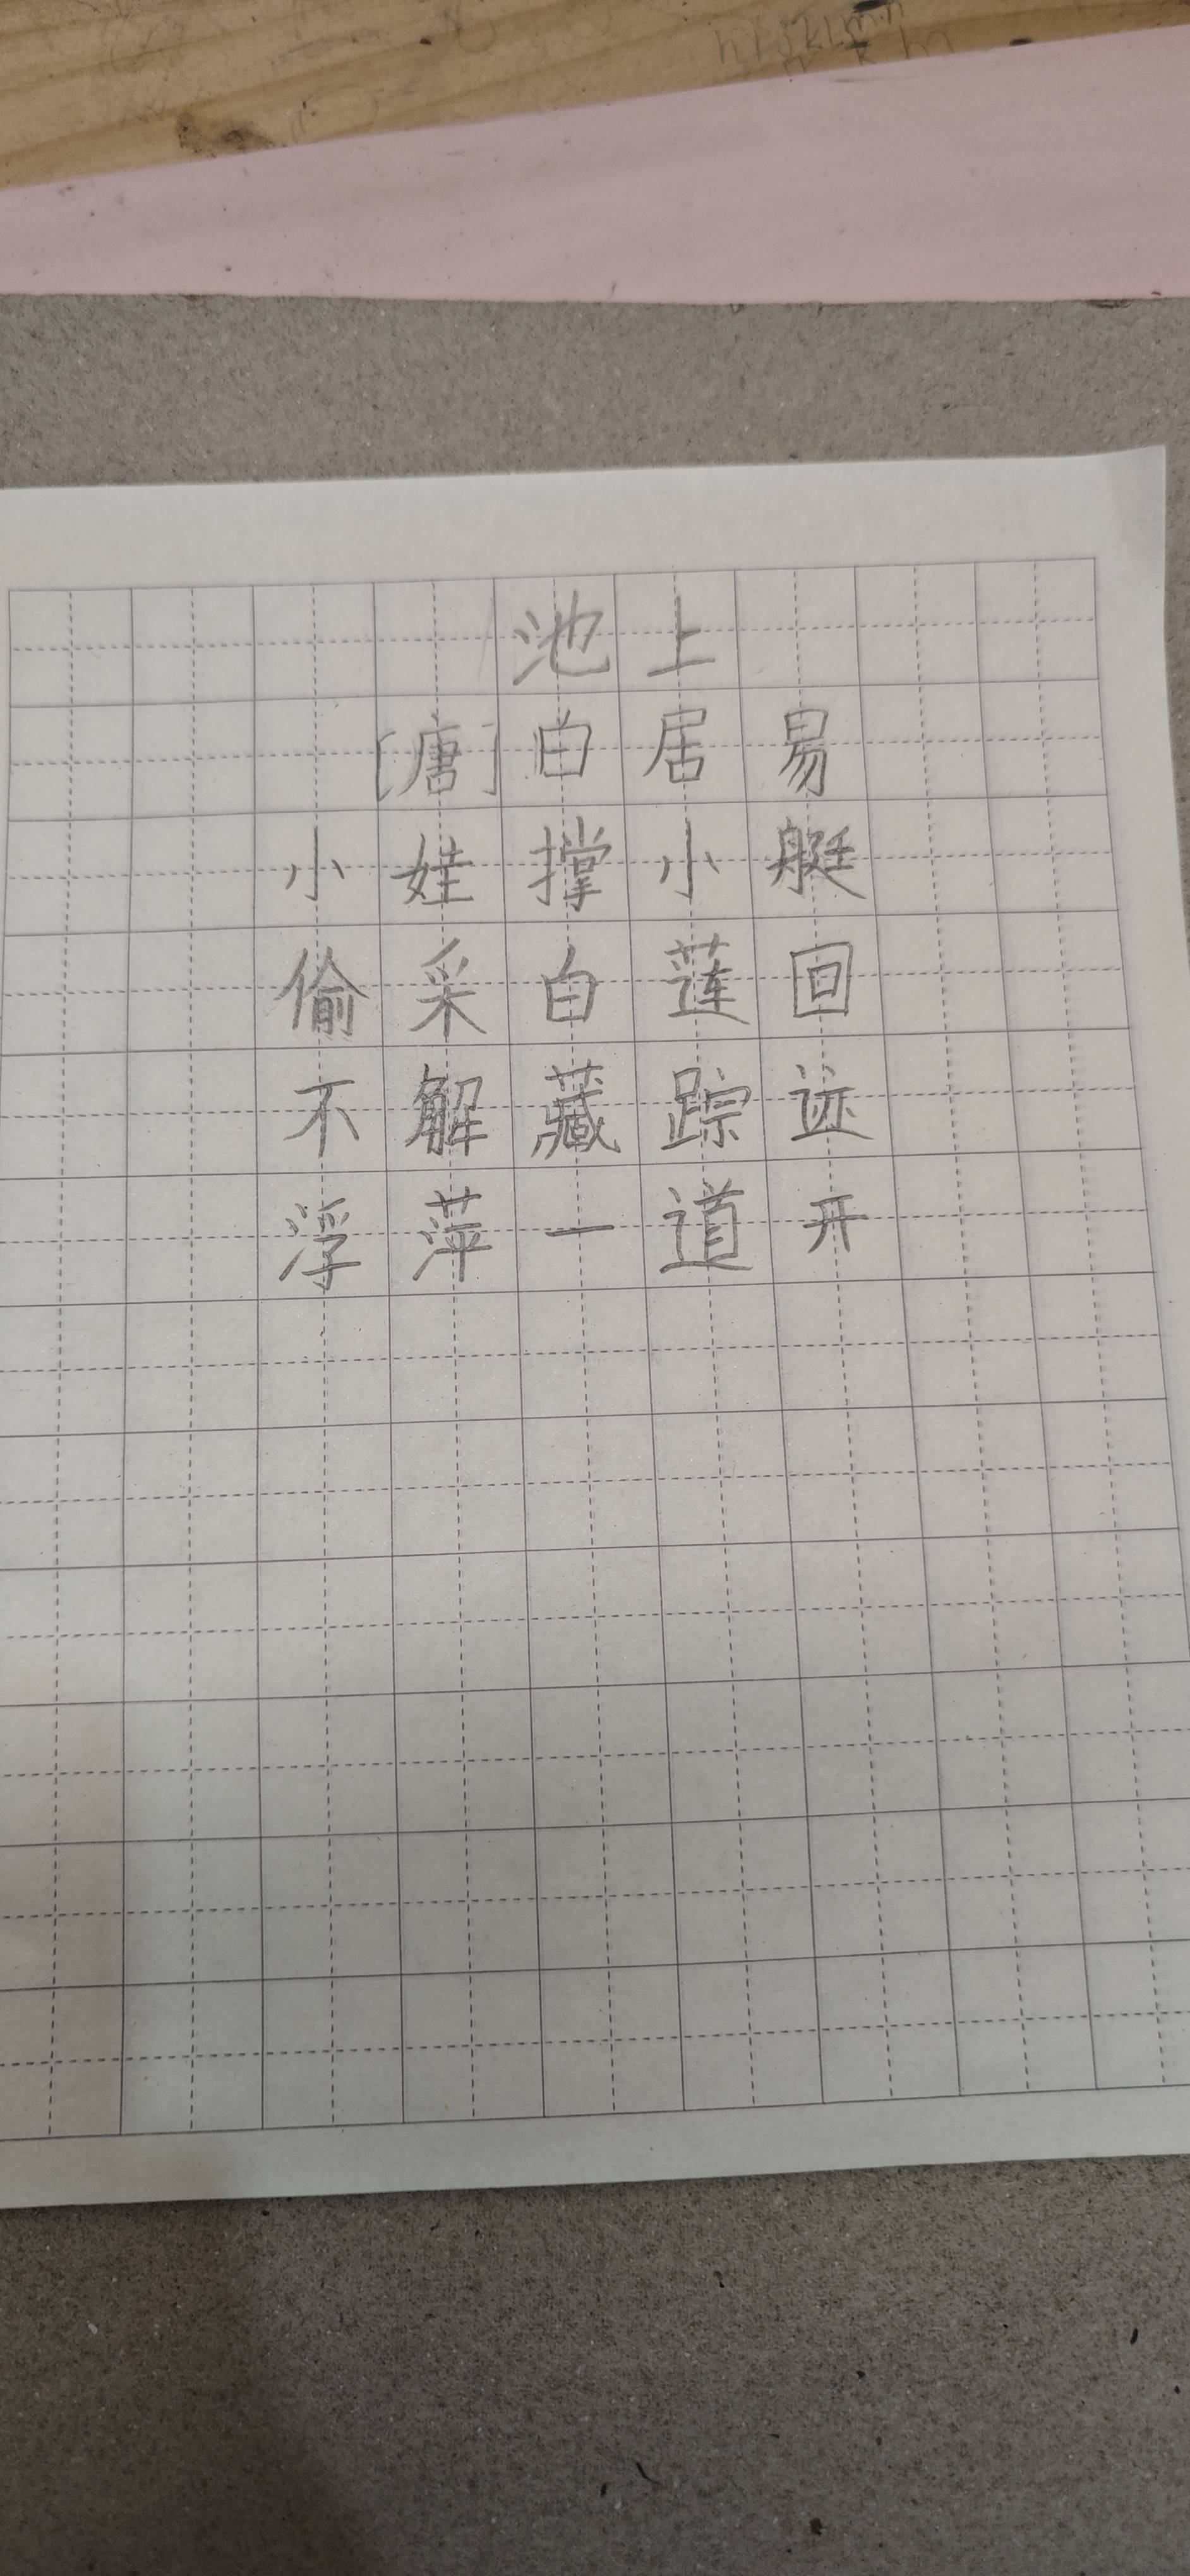 池上
[唐]白居易
小娃撑小艇
偷采白莲回
不解藏踪迹
浮萍一道开